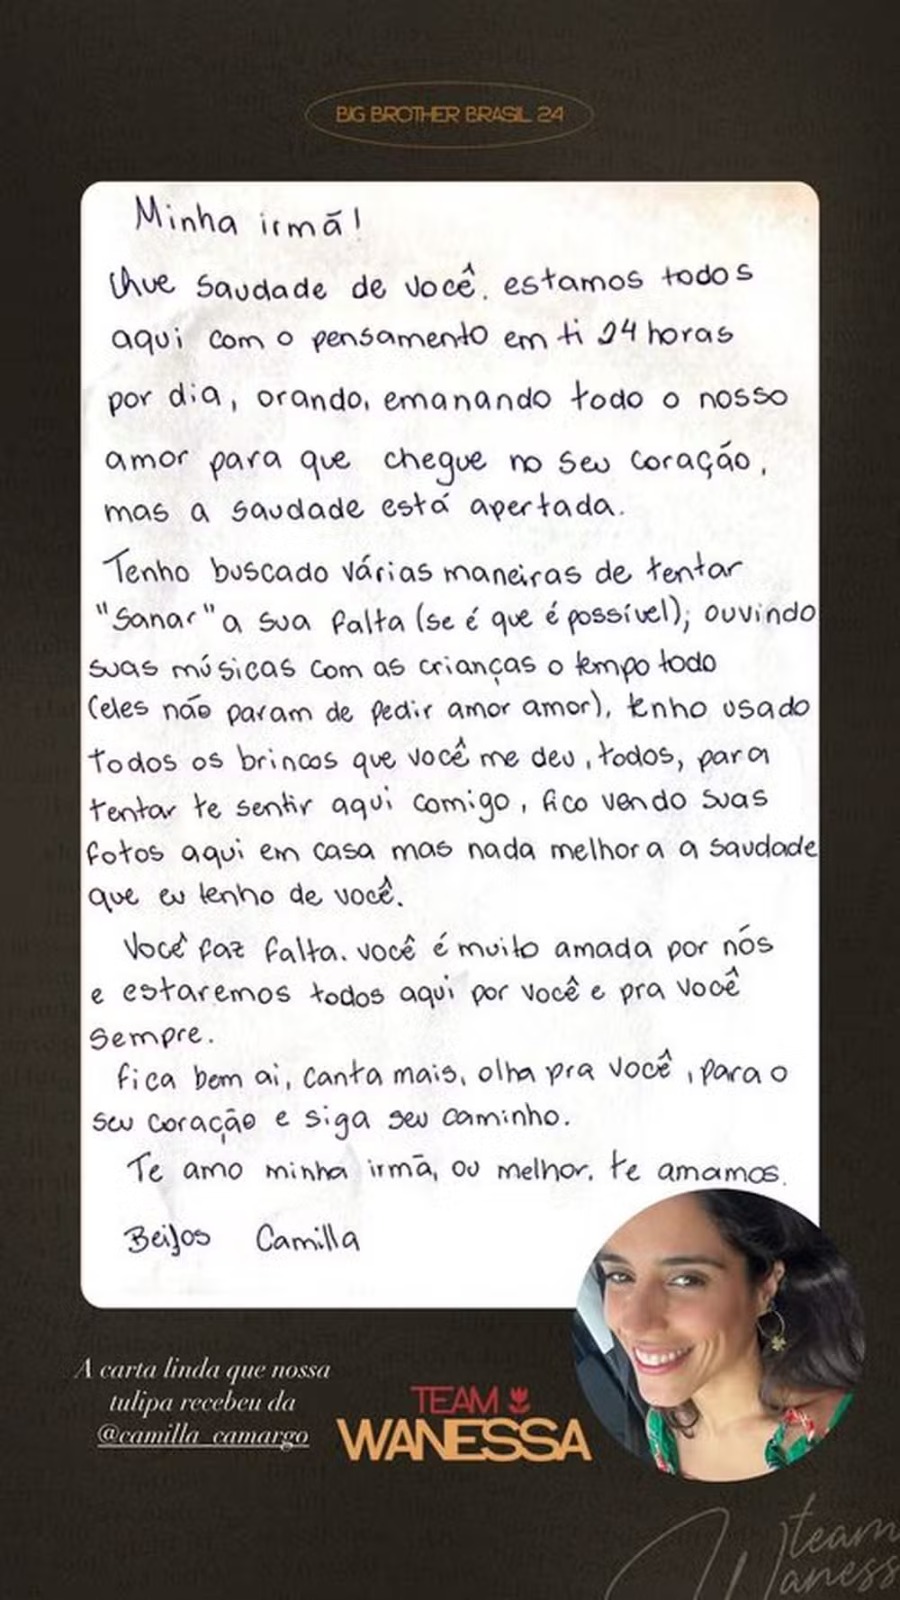 BIG BROTHER BRASIL 24
Minha irmã!
Que saudade de você. estamos todos
aqui com o pensamento em ti 24 horas
por dia, orando, emanando todo o nosso
amor para que chegue no seu coração,
mas a saudade está apertada.
Tenho buscado várias maneiras de tentar
"Sanar" a sua falta (se é que é possível); ouvindo
suas músicas com as crianças o tempo todo
(eles não param de pedir amor amor), tenho usado
todos os brincos que você me deu, todos, para
tentar te sentir aqui comigo, fico vendo suas
fotos aqui em casa mas nada melhora a saudade
que eu tenho de você.
Você faz falta. você é muito amada por nós
e estaremos todos aqui por você e pra você
sempre.
fica bem ai, canta mais, olha pra você, para o
seu coração e siga seu caminho.
Te amo minha irmã, ou melhor, te amamos.
Beijos Camilla
A carta linda que nossa
tulipa recebeu da
@camilla_camargo
TEAM
WANESSA
team
Waness